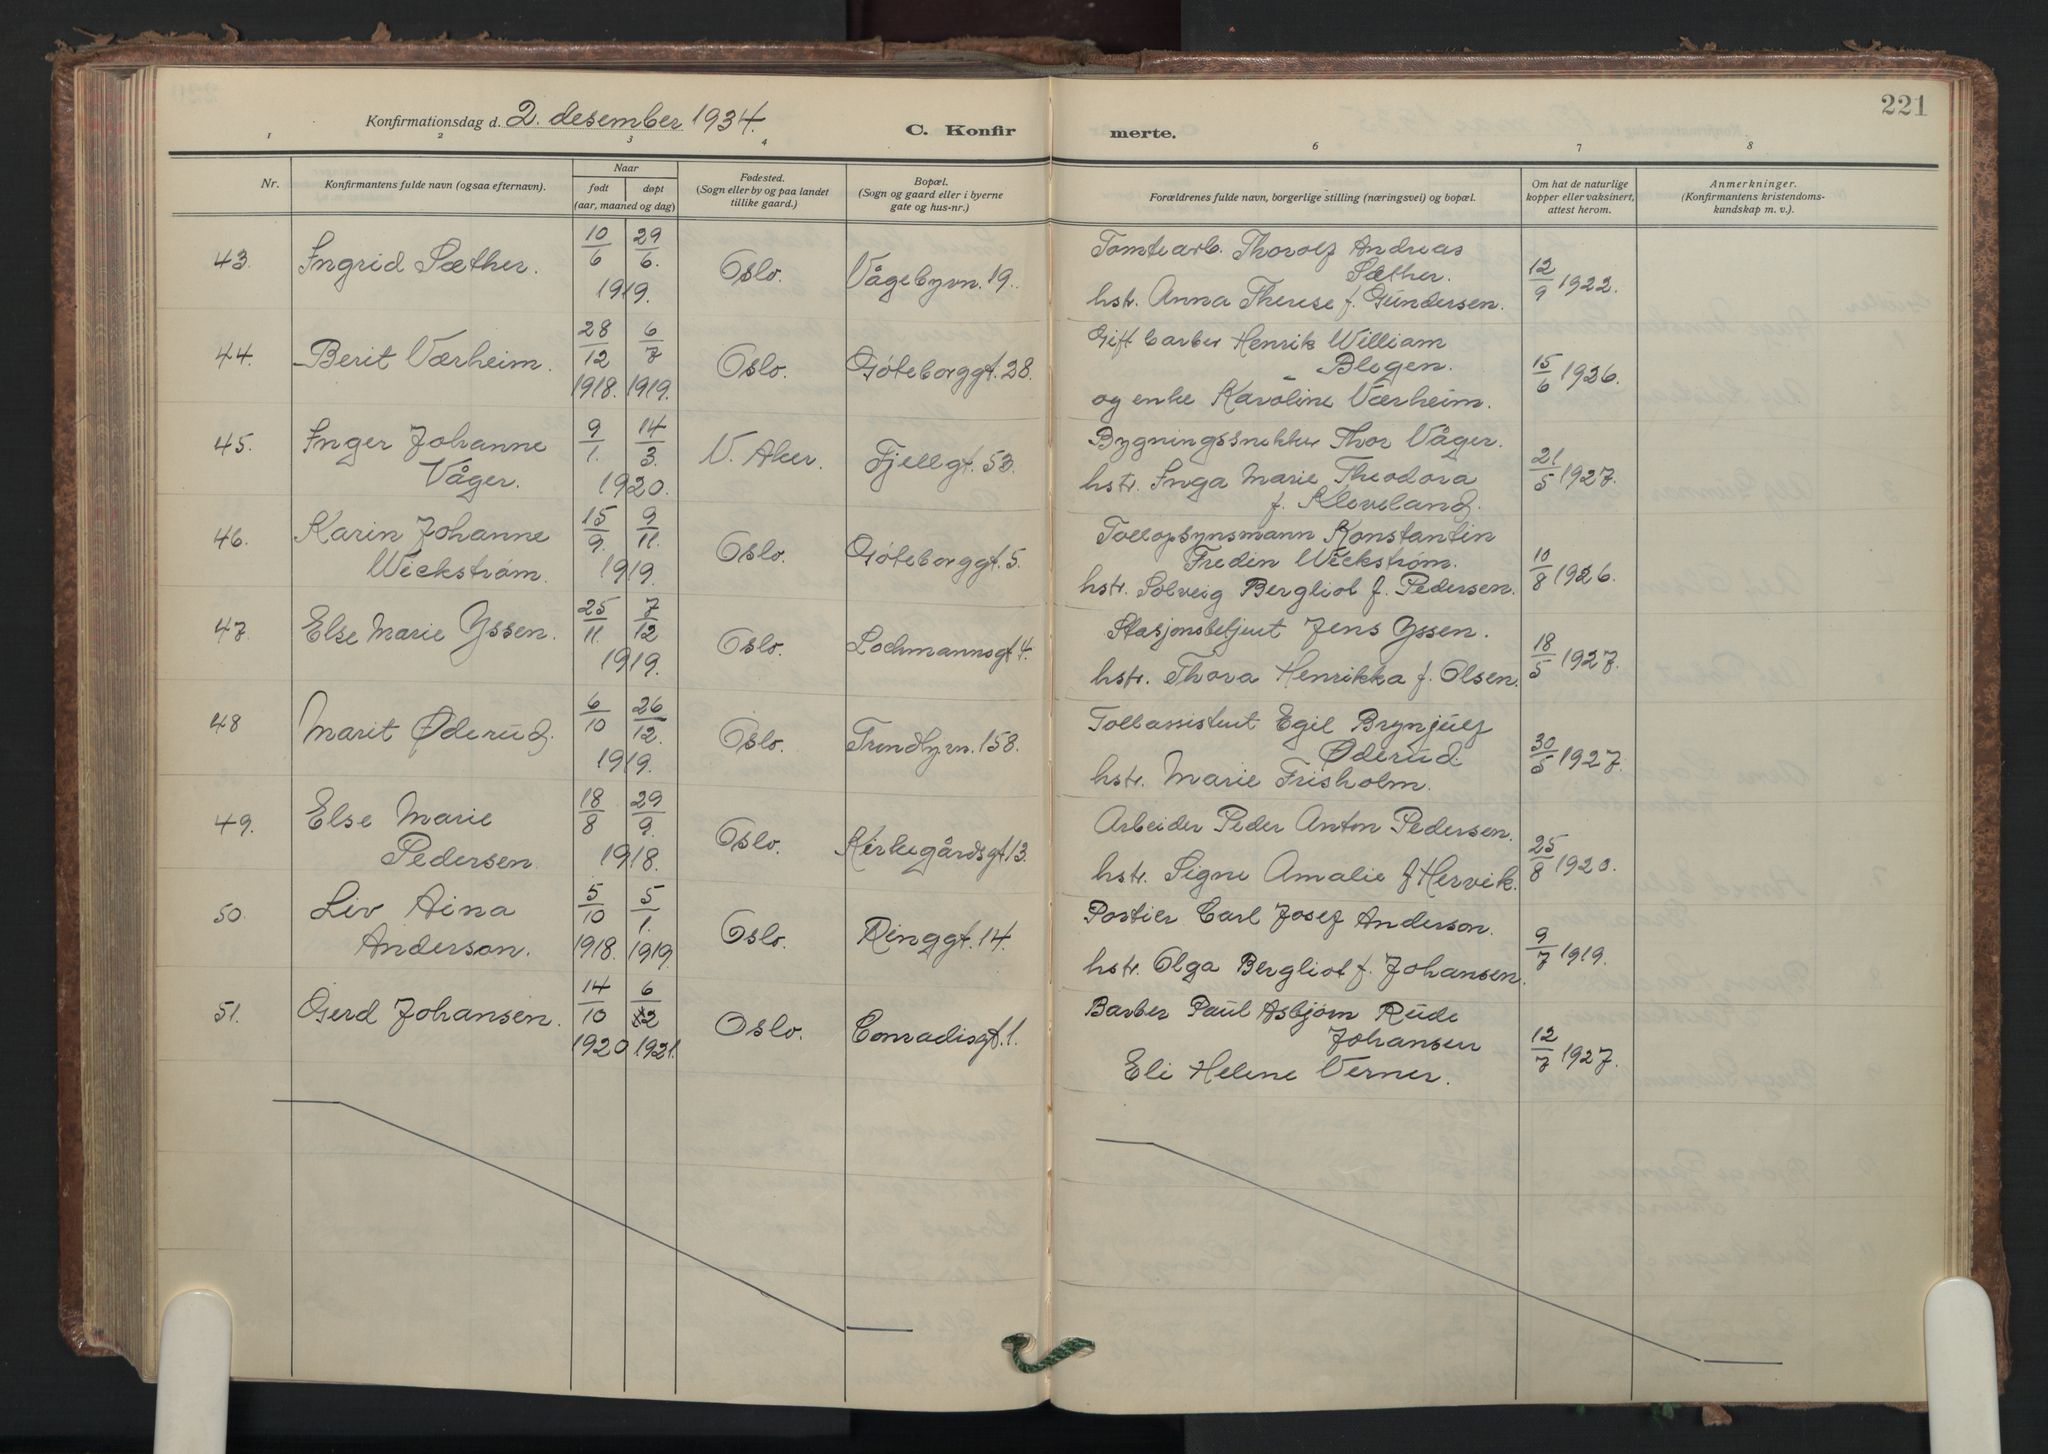 221
Konfirmationsdag d. 2. desember 1934.
C. Konfir merte.
1 2 3 4 6 7 8
Nr.
Konfirmantens fulde navn (ogsaa efternavn).
Naar
født døpt
(aar, maaned og dag)
Fødested.
(Sogn eller by og paa landet
tillike gaard.)
Bopæl.
(Sogn og gaard eller i byerne
gate og hus-nr.)
Forældrenes fulde navn, borgerlige stilling (næringsvei) og bopæl.
Om hat de naturlige
kopper eller vaksinert,
attest herom.
Anmerkninger.
(Konfirmantens kristendoms-
kundskap m. v.).
43. Ingrid Sæther. 10/6 29/6. 1919. Oslo. Vågebyvn. 19.
Tomtearb. Thorolf Andreas
Sæther.
hstr. Anna Therese f. Gundersen. 12/9 1922.
44. Berit Værheim. 28/12 1918. 6/7 1919. Oslo. Göteborggt. 28.
Gift barber Henrik William
Blegen.
og enke Karoline Værheim. 15/6 1926.
45. Inger Johanne
Våger. 9/1. 14/3. 1920. V. Aker. Fjellgt. 53.
Bygningssnekker Thor Våger.
hstr. Inga Marie Theodora
f. Kloveland. 21/5 1927.
46. Karin Johanne
Wickstrøm. 15/9. 9/11. 1919. Oslo. Göteborggt. 5.
Tollopsynsmann Konstantin
Fredin Wickstrøm.
hstr. Solveig Bergliot f. Pedersen. 10/8 1926.
47. Else Marie Yssen. 25/11. 7/12 1919. Oslo. Lochmannsgt. 4.
Stasjonsbetjent Jens Yssen.
hstr. Thora Henrikka f. Olsen. 18/5 1927.
48 Marit Øderud. 6/10 26/12. 1919. Oslo. Trondhj.vn. 158.
Tollassistent Egil Brynjulf
Øderud.
hstr. Marie Frisholm. 30/5 1927.
49. Else Marie
Pedersen. 18/8 29/9. 1918. Oslo. Kirkegårdsgt. 13.
Arbeider Peder Anton Pedersen.
hstr. Signe Amalie f. Hervik. 25/8 1920.
50. Liv Aina
Anderson. 5/10 1918. 5/1. 1919. Oslo. Ringgt. 14.
Portier Carl Josef Anderson.
hstr. Olga Bergliot f. Johansen. 9/7 1919.
51. Gerd Johansen. 14/10 1920 6/2 1921. Oslo. Conradisgt. 1.
Barber Paul Asbjørn Rude
Johansen
Eli Helene Verner. 12/7 1927.